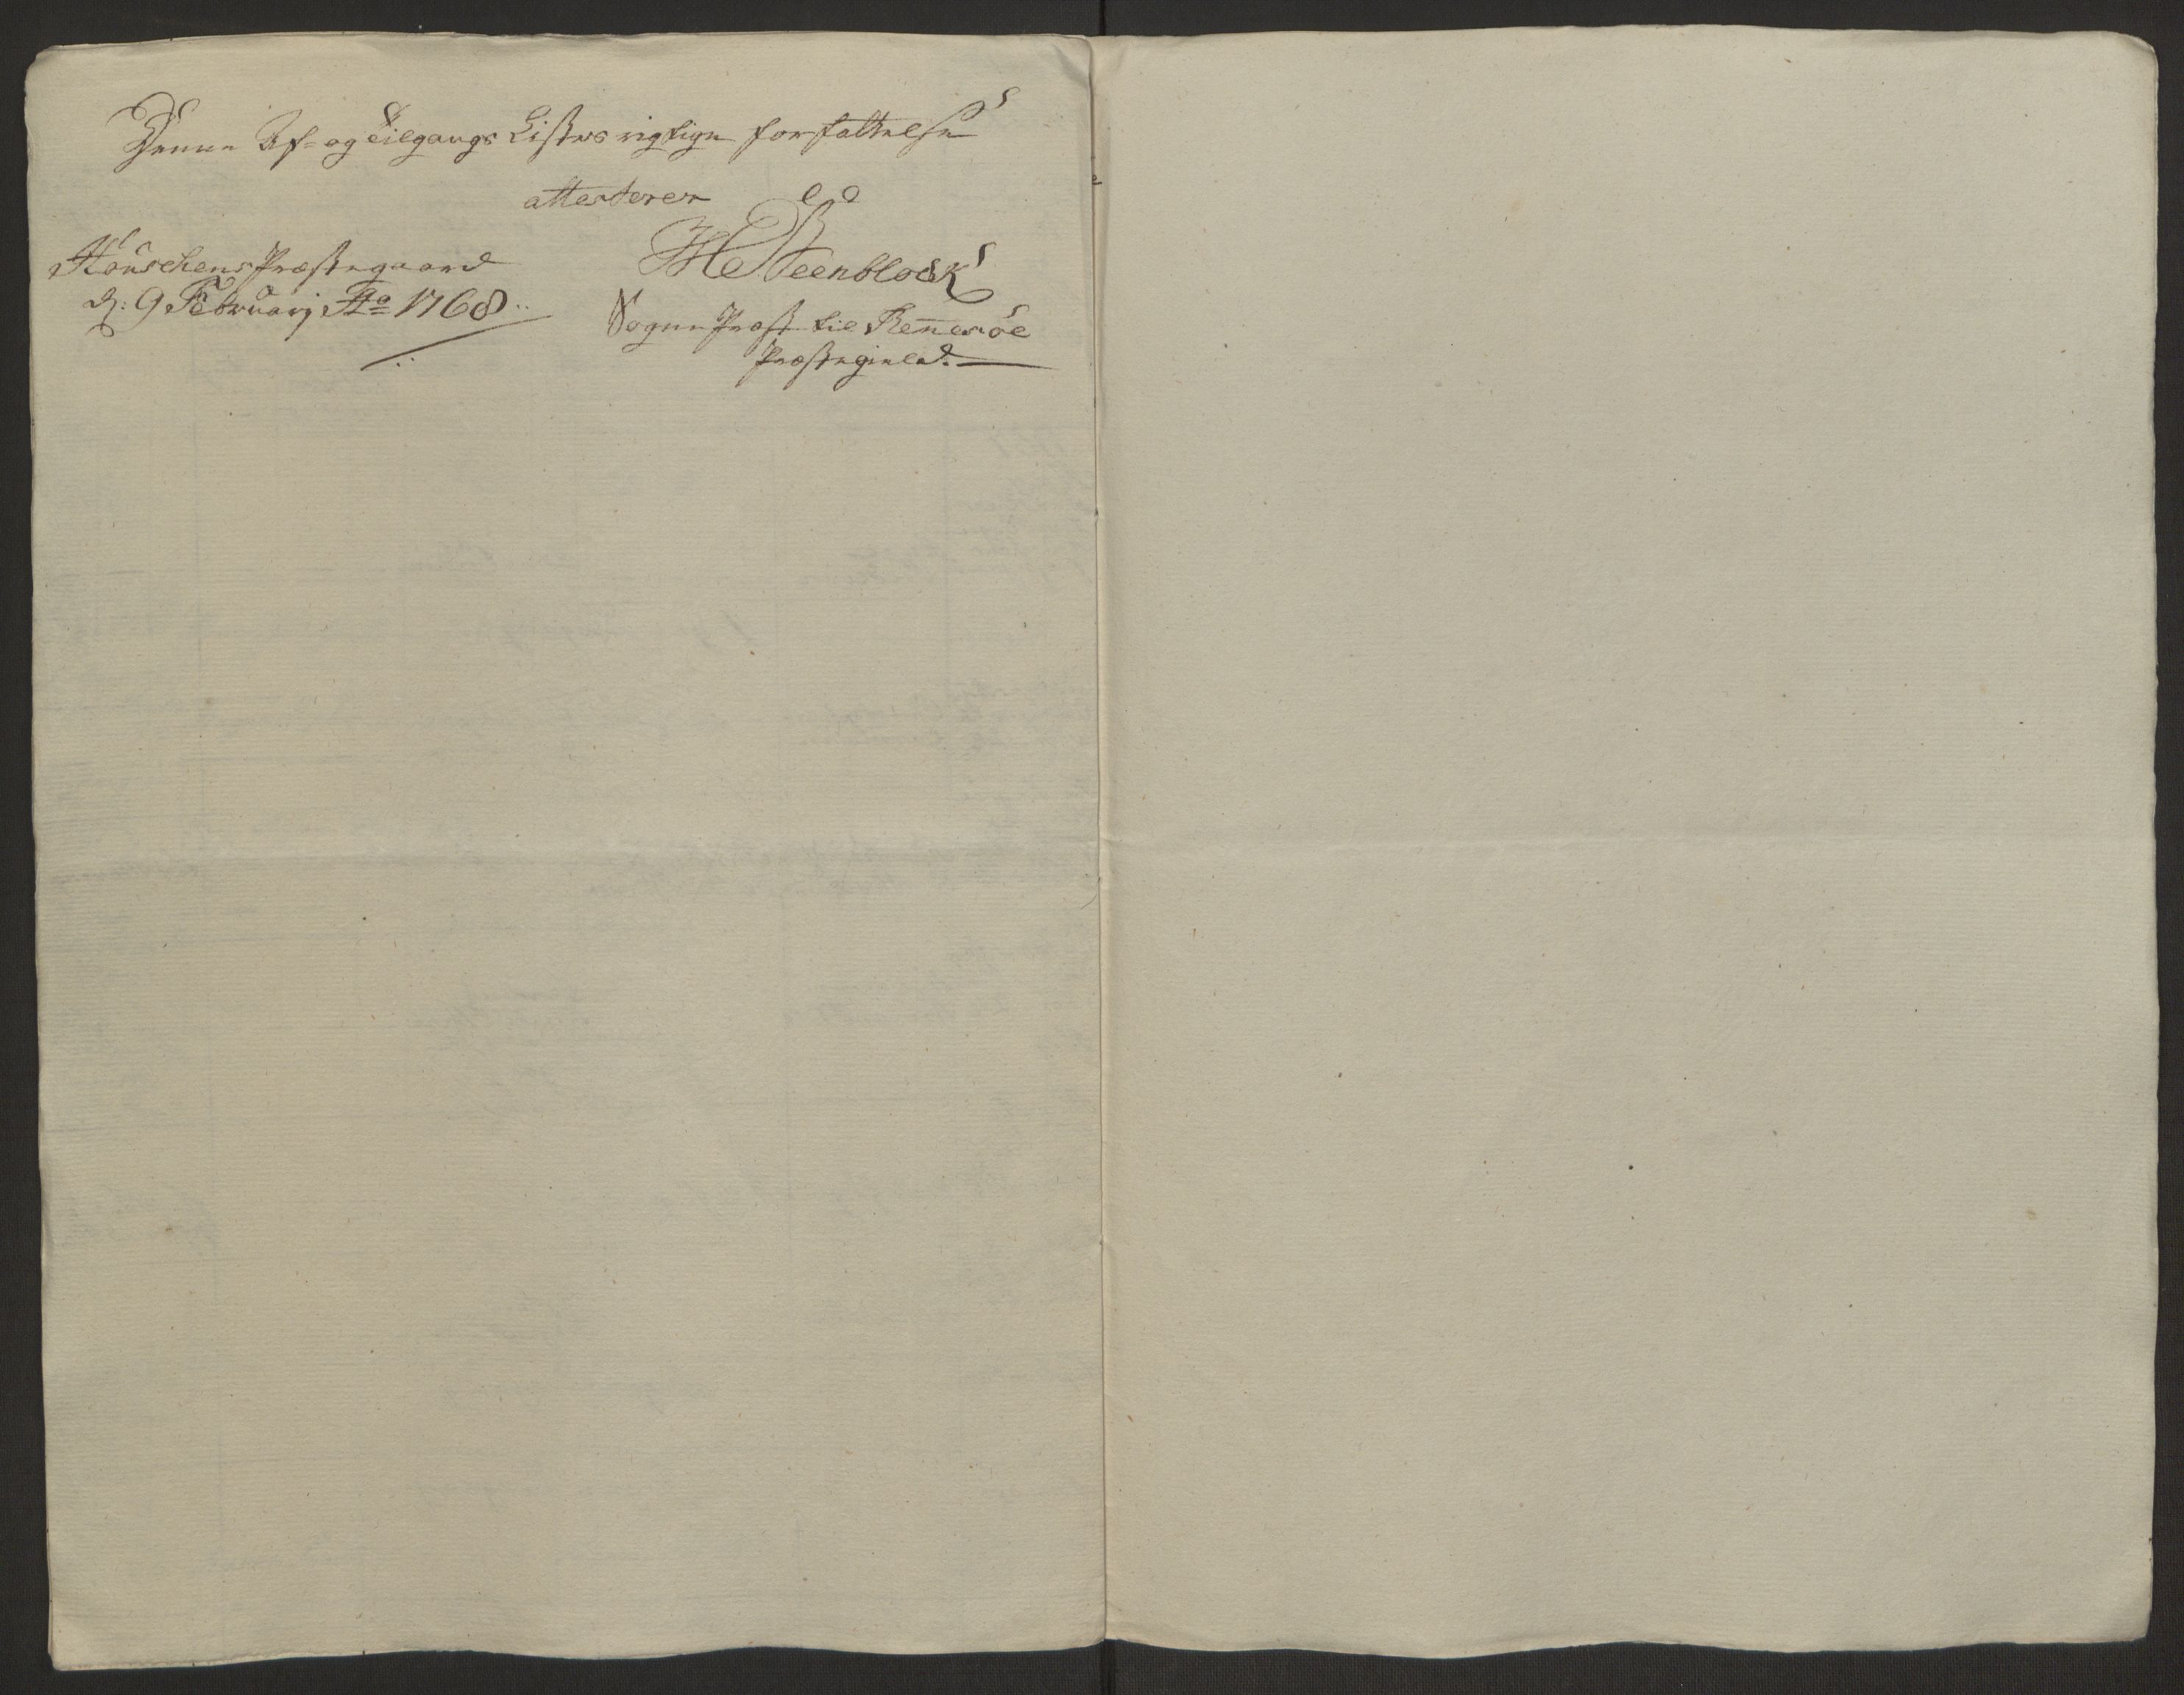 Denne Af- og Tilgangs Listes rigtige forfattelse
attesterer
Hauschens Præstegaard
d: 9 Februarij Ao 1768
HSteenblock
Sogne Præst til Rennesöe
Præstegield.